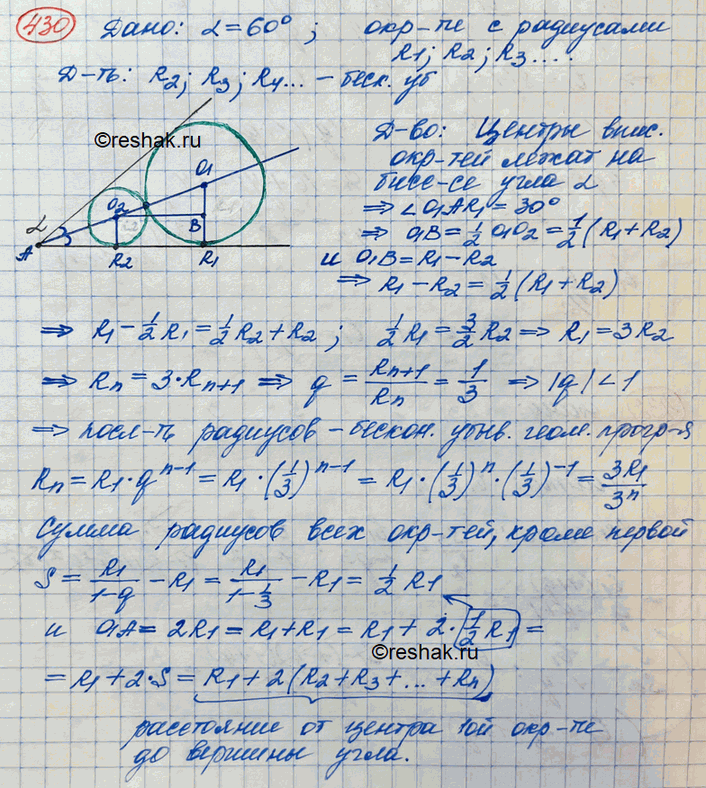 430 Дано: α = 60° ; окр-ти с радиусами
R1; R2; R3 ....
Д-ть: R2; R3; R4... – беск. уб
©reshak.ru
α
A
O2
O1
B
R2
R1
Д-во: Центры впис.
окр-тей лежат на
бисс-се угла α
⇒ ∠O1AR1 = 30°
⇒ O1B = 1/2 O1O2 = 1/2 (R1+R2)
и O1B = R1 - R2
⇒ R1 - R2 = 1/2 (R1+R2)
⇒ R1 - 1/2 R1 = 1/2 R2 + R2 ; 1/2 R1 = 3/2 R2 ⇒ R1 = 3R2
⇒ Rn = 3·Rn+1 ⇒ q = Rn+1/Rn = 1/3 ⇒ |q| < 1
⇒ посл-ть радиусов – бескон. убыв. геом. прогр-я
Rn = R1·q^(n-1) = R1·(1/3)^(n-1) = R1·(1/3)^n·(1/3)^(-1) = 3R1/3^n
Сумма радиусов всех окр-тей, кроме первой
S = R1/(1-q) - R1 = R1/(1-1/3) - R1 = 1/2 R1
и O1A = 2R1 = R1 + R1 = R1 + 2·1/2 R1 =
©reshak.ru
= R1 + 2·S = R1 + 2(R2 + R3 + ... + Rn)
расстояние от центра 1ой окр-ти
до вершины угла.